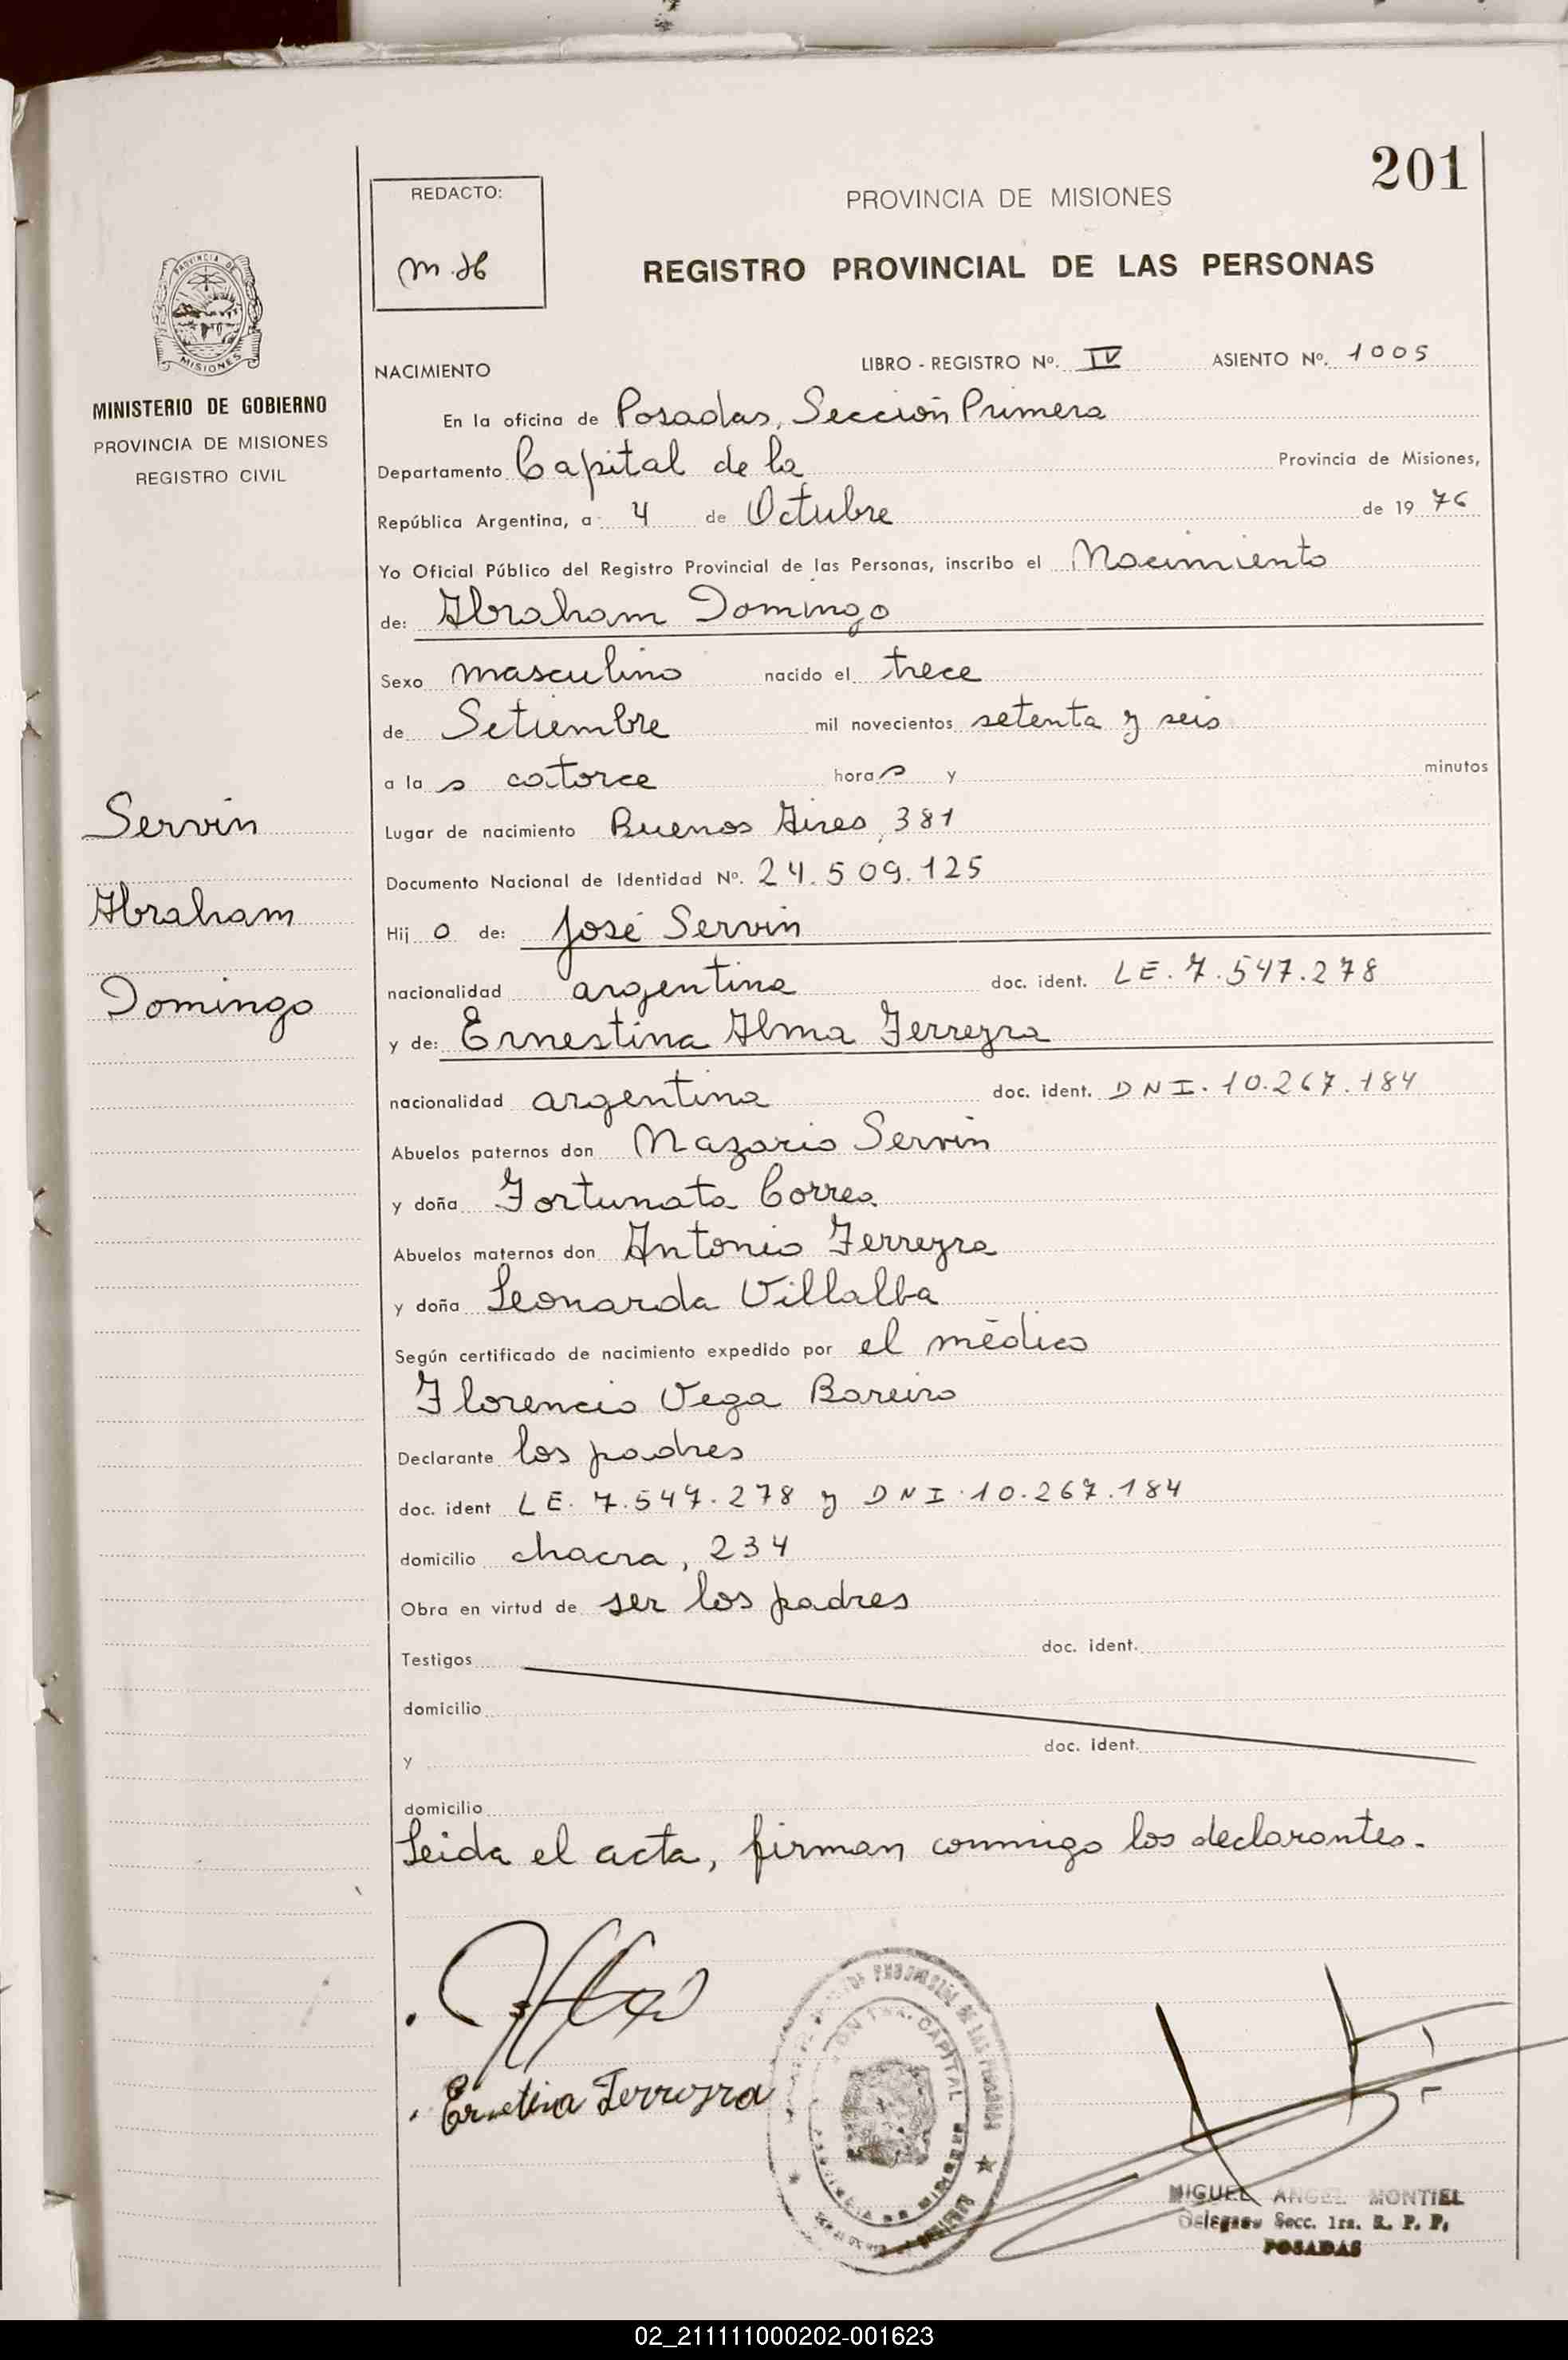 201
REDACTO:
PROVINCIA DE MISIONES
REGISTRO PROVINCIAL DE LAS PERSONAS
PROVINCIA DE
MISIONES
MINISTERIO DE GOBIERNO
PROVINCIA DE MISIONES
REGISTRO CIVIL
Servin
Abraham
Domingo
NACIMIENTO LIBRO - REGISTRO Nº. IV ASIENTO Nº. 1005
En la oficina de Posadas, Sección Primera
Departamento Capital de la Provincia de Misiones,
República Argentina, a 4 de Octubre de 19 76
Yo Oficial Público del Registro Provincial de las Personas, inscribo el Nacimiento
de: Abraham Domingo
Sexo masculino nacido el trece
de Setiembre mil novecientos setenta y seis
a la s catorce hora s y minutos
Lugar de nacimiento Buenos Aires, 381
Documento Nacional de Identidad Nº. 24.509.125
Hij o de: José Servin
nacionalidad argentina doc. ident. LE. 7.547.278
y de: Ernestina Alma Ferreyra
nacionalidad argentina doc. ident. DNI. 10.267.184
Abuelos paternos don Nazario Servin
y doña Fortunata Correa
Abuelos maternos don Antonio Ferreyra
y doña Leonarda Villalba
Según certificado de nacimiento expedido por el médico
Florencio Vega Bareiro
Declarante los padres
doc. ident LE. 7.547.278 y DNI. 10.267.184
domicilio chacra, 234
Obra en virtud de ser los padres
Testigos doc. ident.
domicilio
y doc. ident.
domicilio
Leida el acta, firman conmigo los declarantes.
Ferreyra
CAPITAL
MIGUEL ANGEL MONTIEL
Secc. 1ra. R. P. P.
POSADAS
02_211111000202-001623